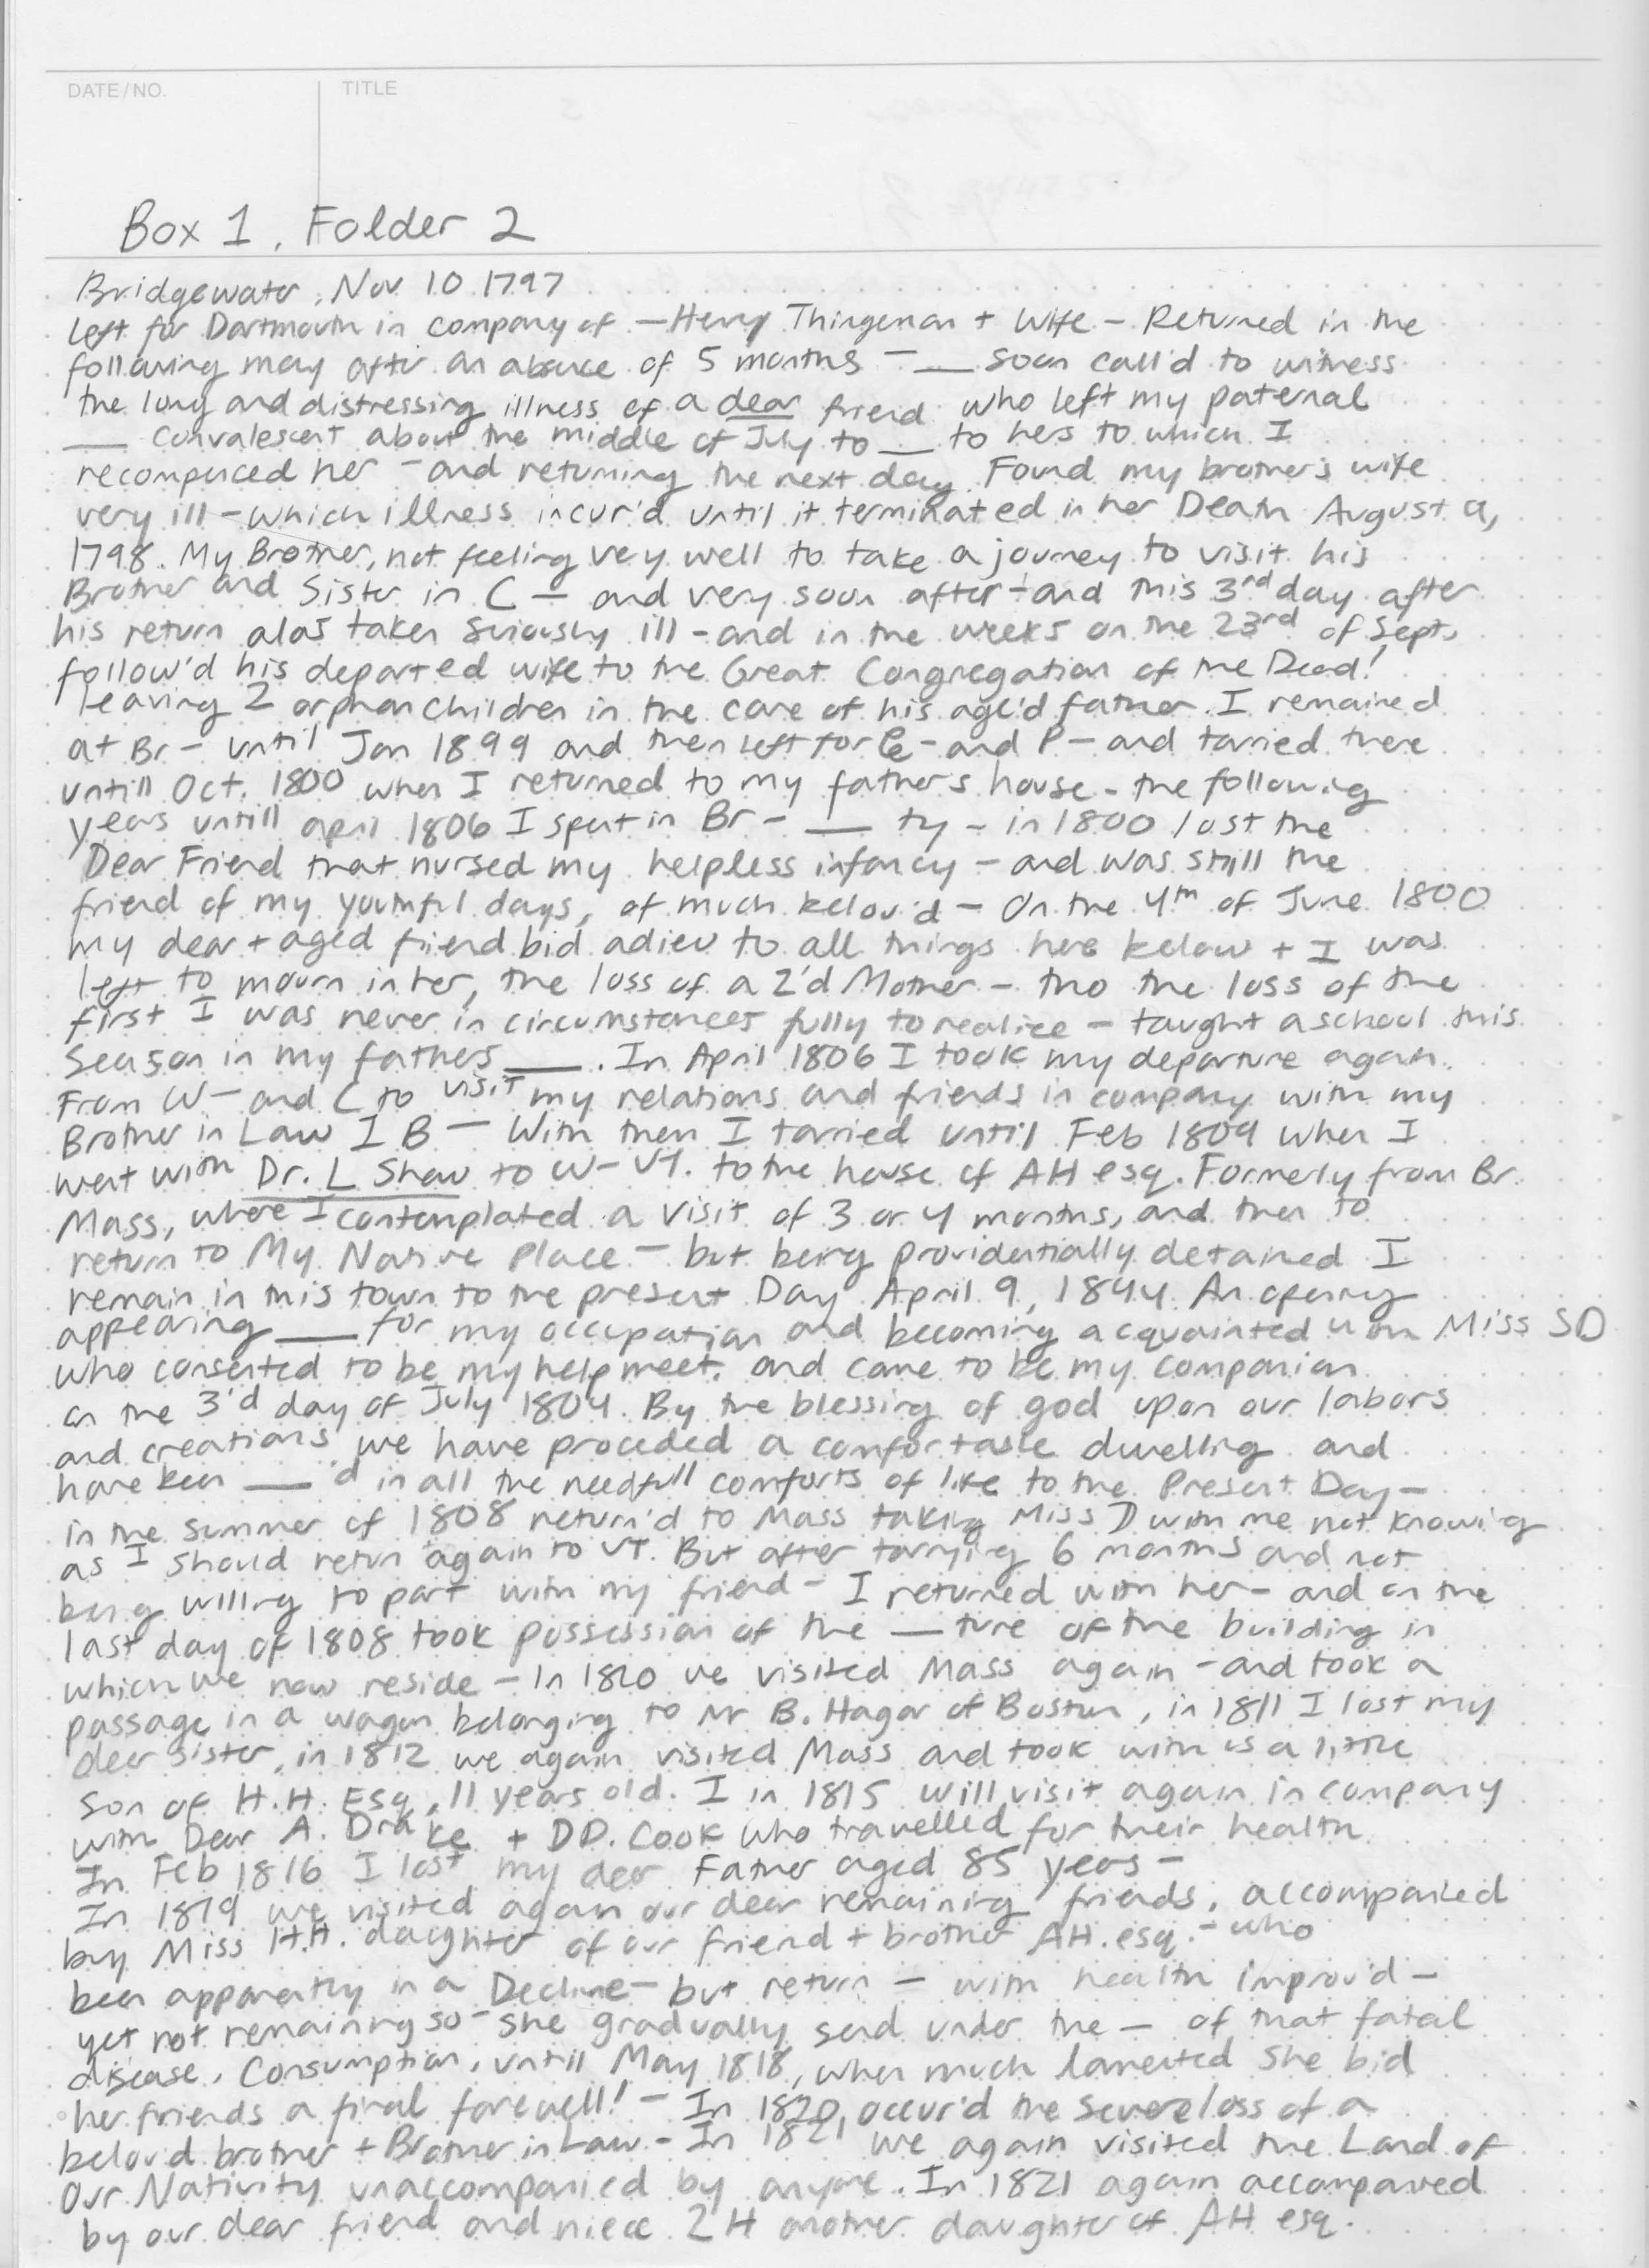 DATE/NO.
TITLE
Box 1, Folder 2
Bridgewater, Nov 10 1797
left for Dartmouth in company of — Henry Thingeman + Wife — Returned in the
following may after an absence of 5 months — __ soon call'd to witness
the long and distressing illness of a dear friend who left my paternal
__ convalescent about the middle of July to __ to hers to which I
recompenced her — and returning the next day Found my brother's wife
very ill — which illness incur'd until it terminated in her Death August 9,
1798. My Brother, not feeling very well to take a journey to visit his
Brother and Sister in C — and very soon after — and this 3rd day after
his return alas taken seriously ill — and in the weeks on the 23rd of Sept,
follow'd his departed wife to the Great Congregation of the Dead!
leaving 2 orphan children in the care of his age'd father. I remained
at Br — until Jan 1899 and then left for — and P — and tarried there
untill Oct. 1800 when I returned to my father's house - the following
years untill april 1806 I spent in Br — __ ty - in 1800 lost the
Dear Friend that nursed my helpless infancy — and was still the
friend of my youthful days, of much belov'd — On the 4th of June 1800
my dear + aged friend bid adieu to all things here below + I was
left to mourn in her, the loss of a 2'd Mother — tho the loss of the
first I was never in circumstances fully to realize — taught a school this
Season in my fathers __. In April 1806 I took my departure again
From W — and C to visit my relations and friends in company with my
Brother in Law I B — With them I tarried until Feb 1809 when I
went with Dr. L Shaw to W — VT. to the house of AH esq. Formerly from Br.
Mass, where I contemplated a visit of 3 or 4 months, and then to
return to My Native Place — but being providentially detained I
remain in this town to the present Day April 9, 1844. An opening
appearing __ for my occupation and becoming acquainted with Miss SD
who consented to be my help meet. and came to be my companion
on the 3'd day of July 1804. By the blessing of god upon our labors
and creations we have proceded a comfortable dwelling and
have been __'d in all the needfull comforts of life to the Present Day —
in the summer of 1808 return'd to Mass taking Miss D with me not knowing
as I should return again to VT. But after tarrying 6 months and not
being willing to part with my friend — I returned with her — and on the
last day of 1808 took possession of the __ture of the building in
which we now reside — In 1810 we visited Mass again — and took a
passage in a wagon belonging to Mr B. Hagar of Boston, in 1811 I lost my
dear sister, in 1812 we again visited Mass and took with us a little
son of H.H. Esq, 11 years old. I in 1815 will visit again in company
with Dear A. Drake + DD. Cook who travelled for their health
In Feb 1816 I lost my dear Father aged 85 years —
In 1819 we visited again our dear remaining friends, accompanied
by Miss H.H. daughter of our friend + brother AH. esq. — who
been apparently in a Decline — but return — with health improv'd —
yet not remaining so — she gradually send under the — of that fatal
disease, Consumption, until May 1818, when much lamented she bid
her friends a final farewell! — In 1820, occur'd the severe loss of a
belov'd brother + Brother in Law. — In 1821 we again visited the Land of
Our Nativity unaccompanied by anyone. In 1821 again accompanied
by our dear friend and niece 2 H another daughter of AH esq.